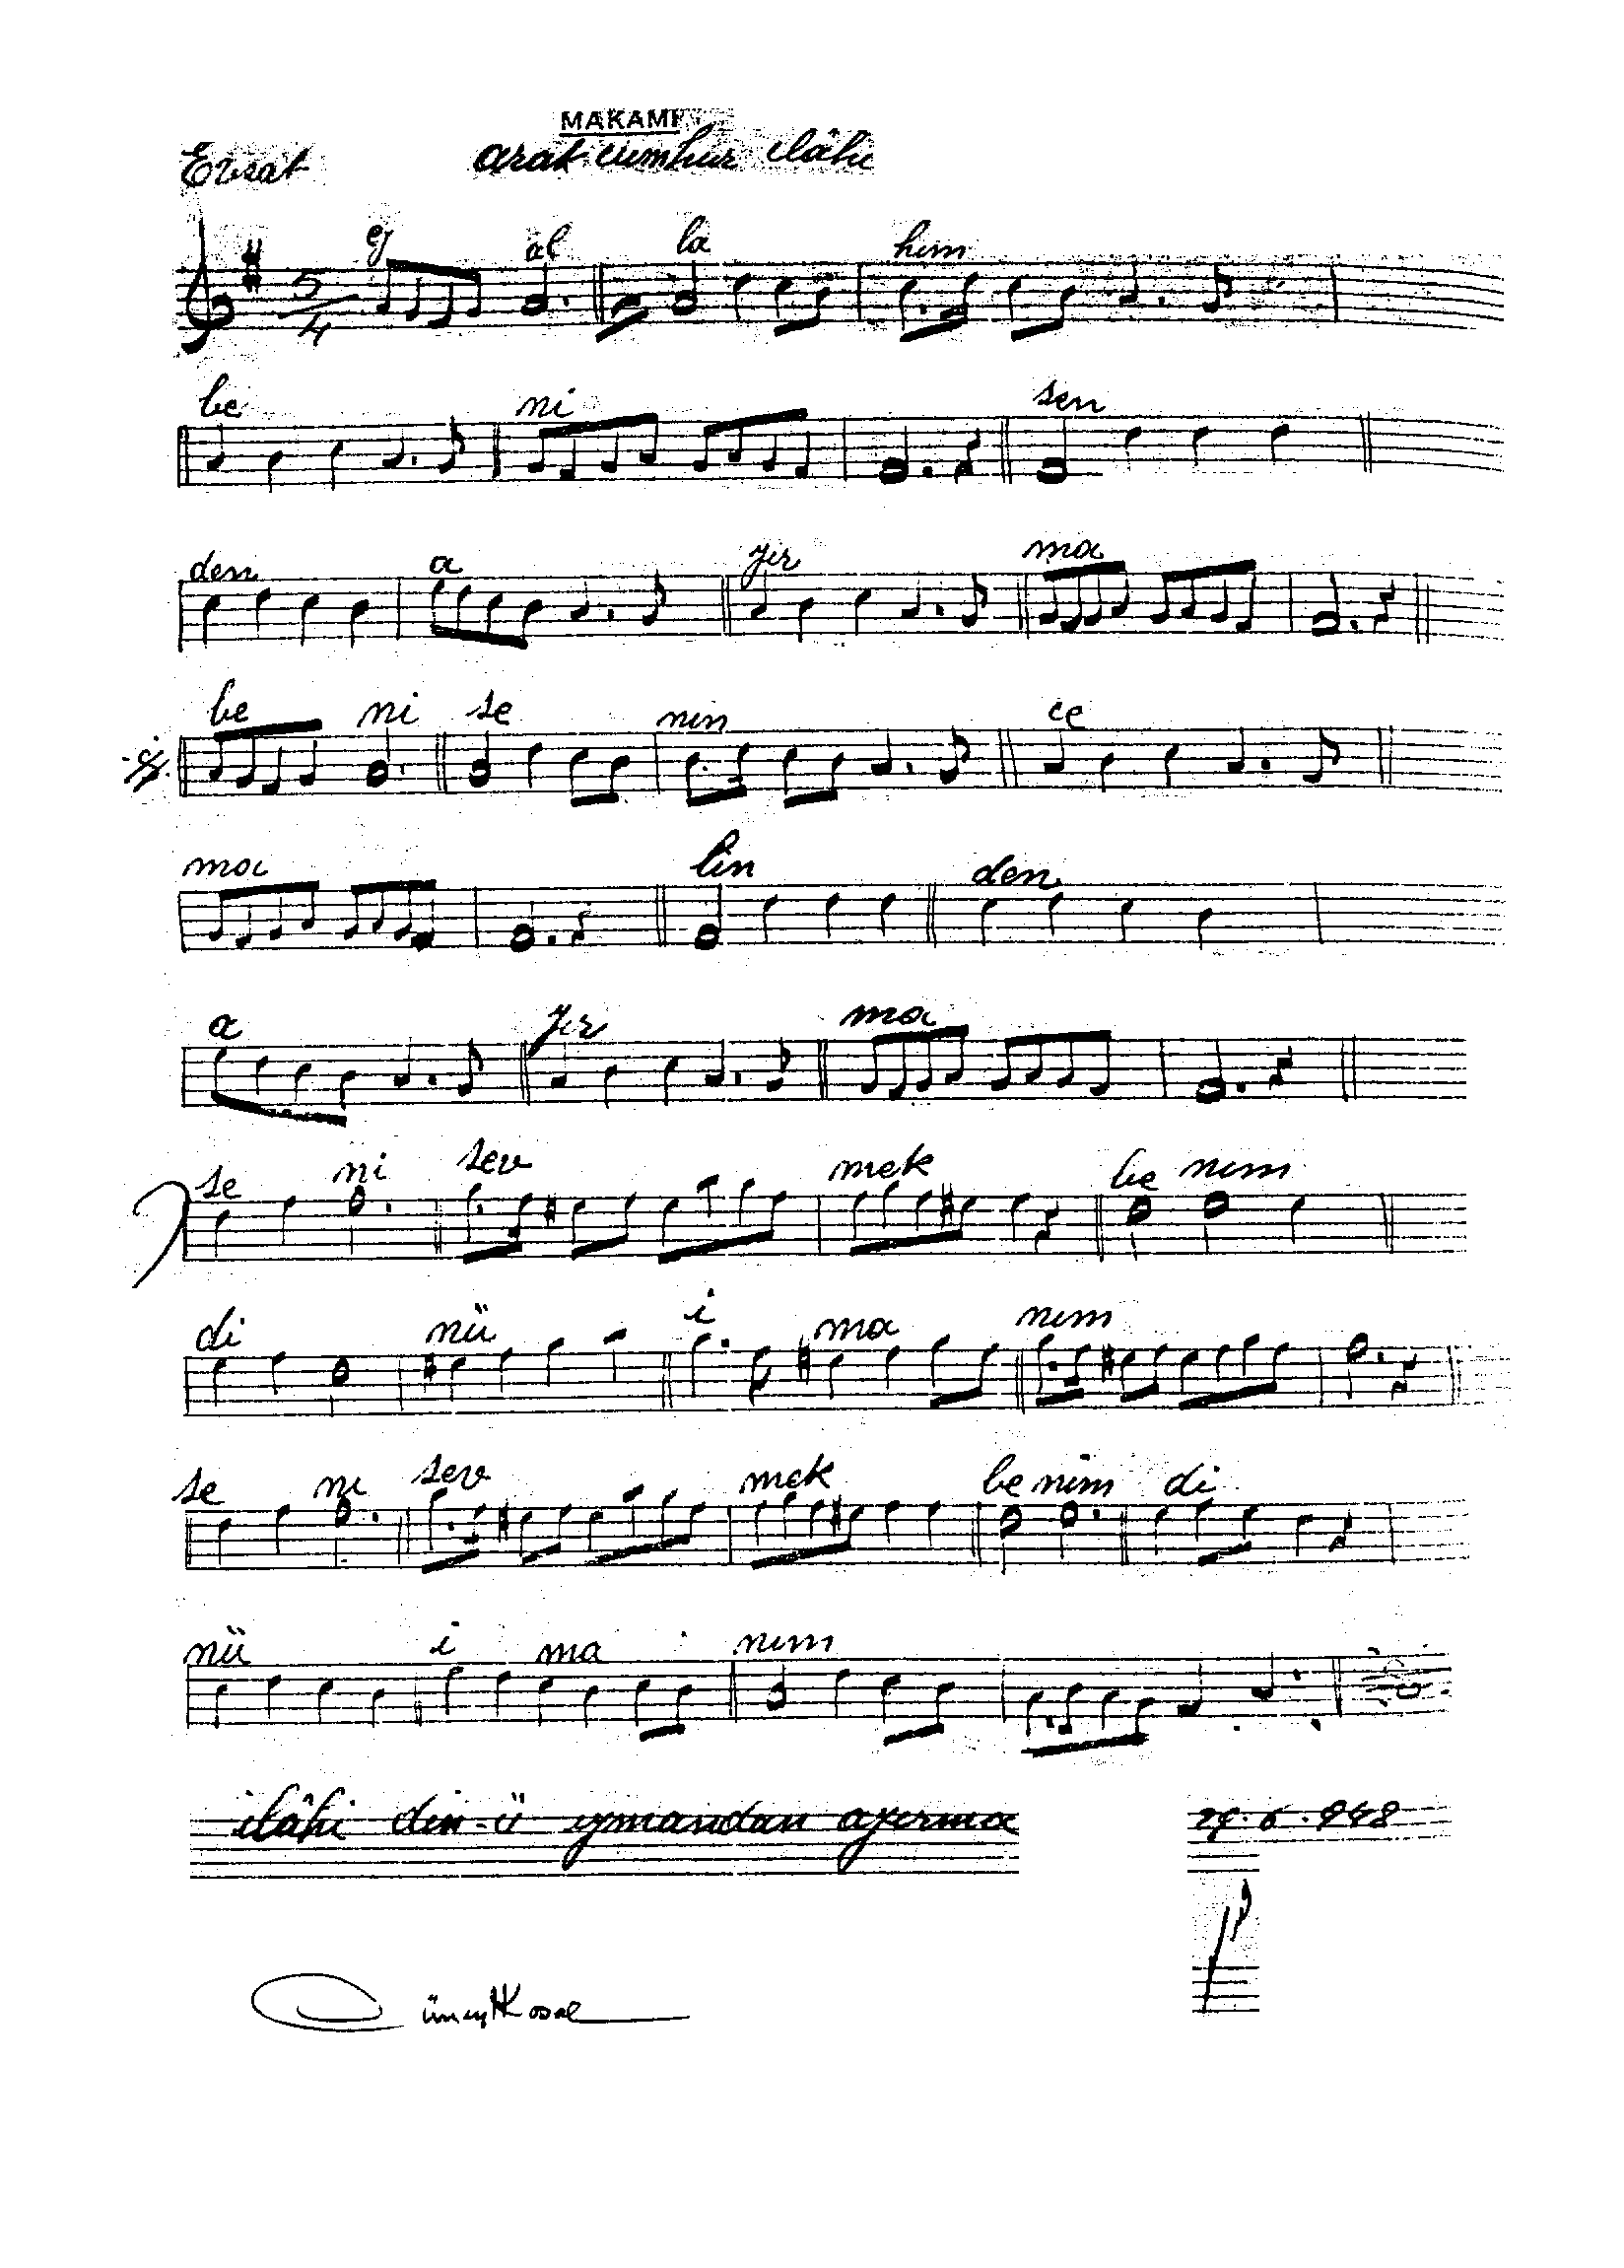 MAKAMI
Evsat arak cumhur ilâhi
5/4
ey al la hım
be ni sen
den a yır ma
be ni se nin ce
ma lin den
a yır ma
se ni sev mek be nım
di nü i ma nım
se ni sev mek be nim di
nü i ma nım
ilâhi din-ü ymandan ayırma
Cüneyt Kosal